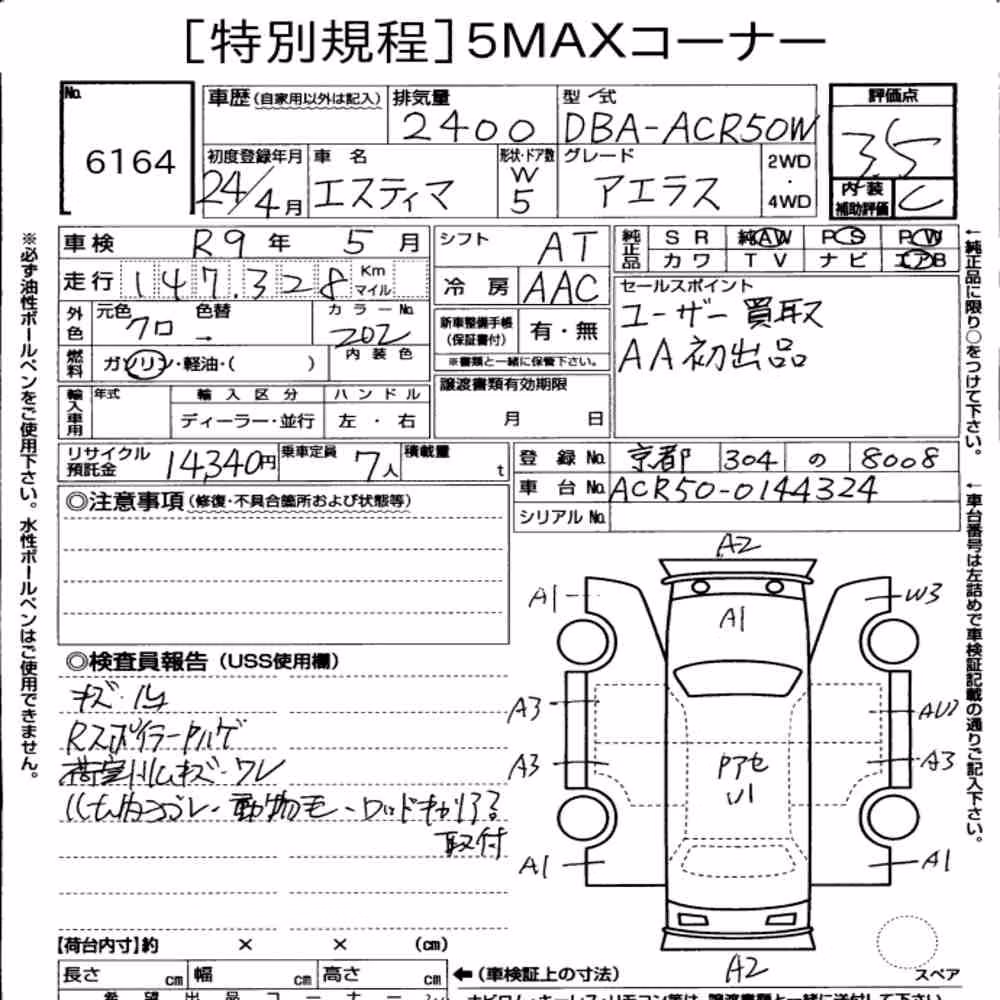 [特別規程]5MAXコーナー
No. 6164
車歴(自家用以外は記入) 排気量 2400 型式 DBA-ACR50W
初度登録年月 24/4月 車名 エスティマ 形状・ドア数 W 5 グレード アエラス 2WD・4WD
評価点 3.5
内装補助評価 C
車検 R9年 5月 シフト AT
純正品 SR 純AW PS PW
カワ TV ナビ エアB
走行 147,328 Km マイル 冷房 AAC
外色 元色 クロ 色替 → カラーNo. 202
燃料 ガソリン・軽油・( ) 内装色
新車整備手帳(保証書付) 有・無
※書類と一緒に保管下さい。
セールスポイント
ユーザー買取
AA初出品
輸入車用 年式 輸入区分 ディーラー・並行 ハンドル 左・右
譲渡書類有効期限 月 日
リサイクル預託金 14,340円 乗車定員 7人 積載量 t
登録No. 京都 304 の 8008
車台No. ACR50-0144324
シリアルNo.
◎注意事項(修復・不具合箇所および状態等)
◎検査員報告(USS使用欄)
キズ・凹
Rスポイラー
キズ・ワレ
取付
A2
A1
W3
A1
A3
A3
A3
A1
A1
A2
スペア
【荷台内寸】約 × × (cm)
長さ cm 幅 cm 高さ cm
←(車検証上の寸法)
希望出品コーナー
※必ず油性ボールペンをご使用下さい。水性ボールペンはご使用できません。
←純正品に限り○をつけて下さい。
←車台番号は左詰めで車検証記載の通りご記入下さい。